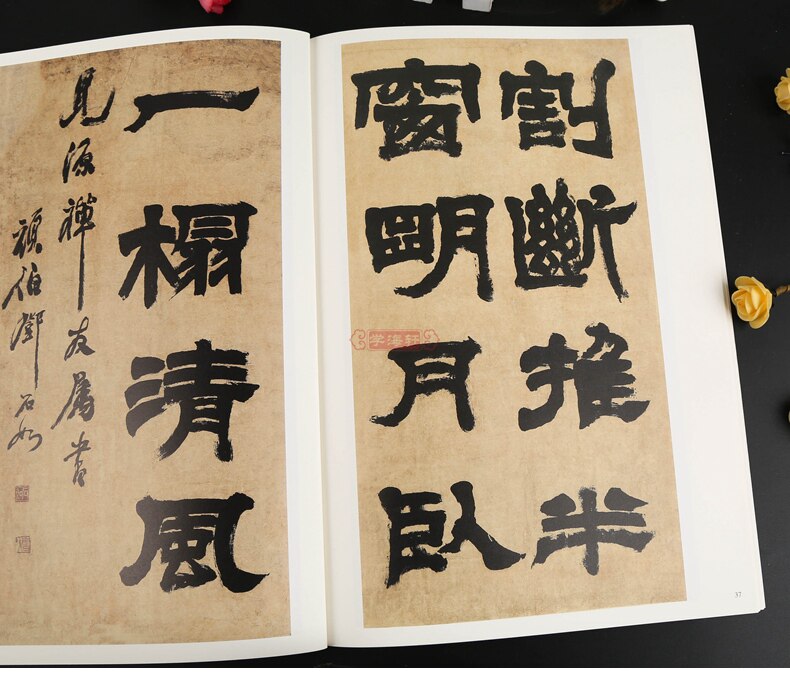 割斷推半
窗明月臥
一榻清風
見源禪友屬書
頑伯鄧石如
学海轩
37